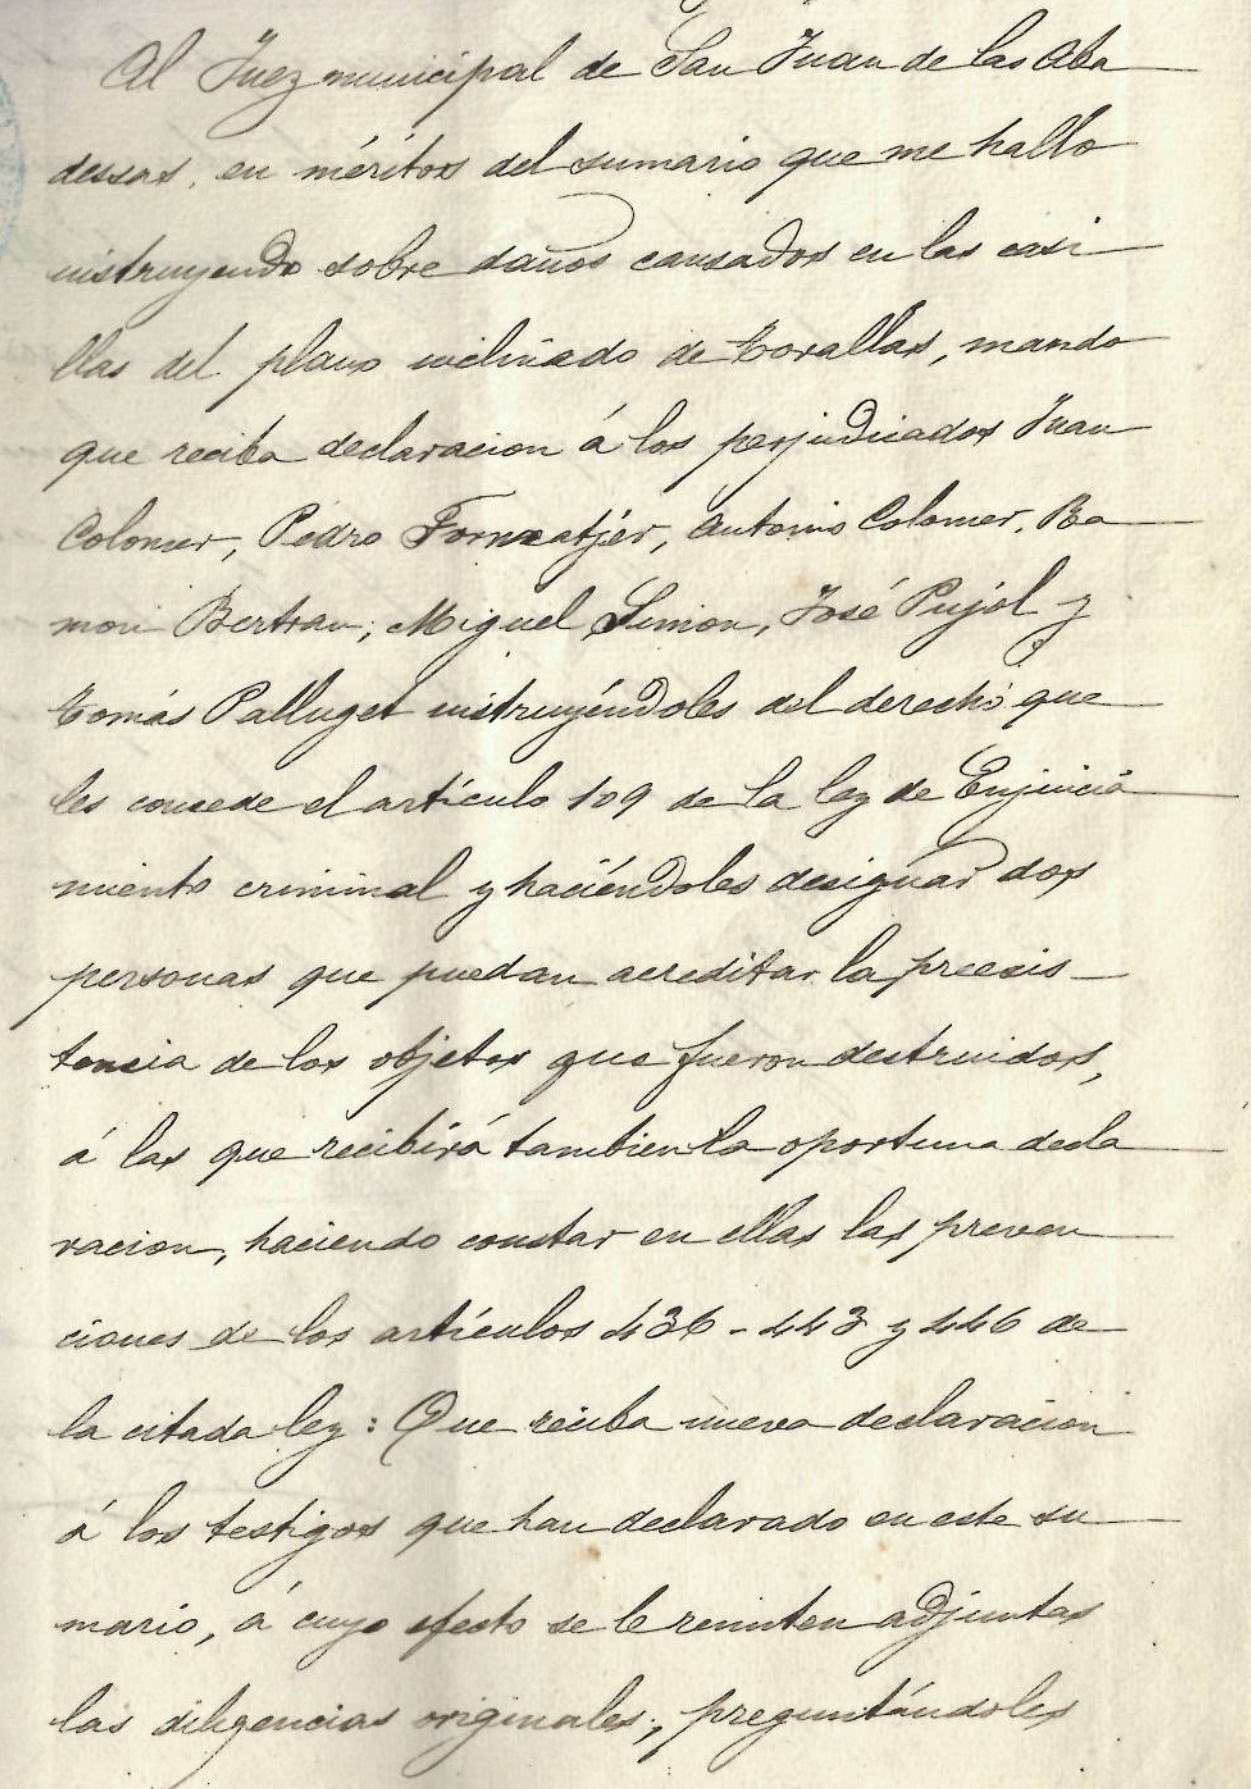 Al Juez municipal de San Juan de las Aba
dessas, en méritos del sumario que me hallo
instruyendo sobre daños causados en las casi
llas del plano inclinado de Torallas, mando
que reciba declaracion á los perjudicados Juan
Colomer, Pedro Fornatjér, Antonio Colomer, Ra
mon Bertran, Miguel Simon, José Pujol y
Tomás Palluget instruyéndoles del derecho que
les concede el artículo 109 de la ley de Enjuicia
miento criminal y haciéndoles designar dos
personas que puedan acreditar la preexis
tencia de los objetos que fueron destruidos,
á las que recibirá tambien la oportuna decla
racion, haciendo constar en ellas las preven
ciones de los artículos 436 - 443 y 446 de
la citada ley: Que reciba nueva declaracion
á los testigos que han declarado en este su
mario, á cuyo efecto se le remiten adjuntas
las diligencias originales, preguntándoles